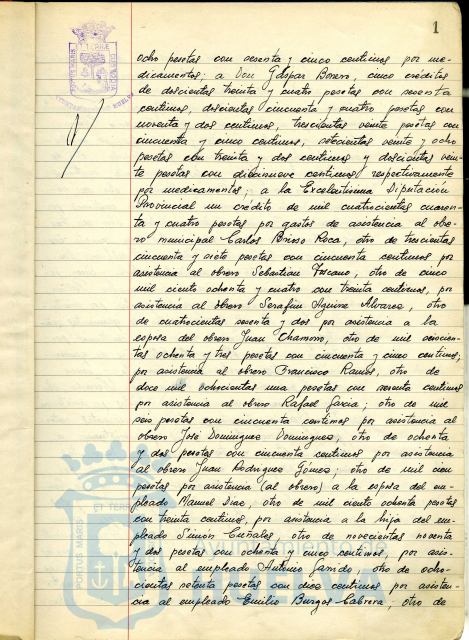 1
ocho pesetas con sesenta y cinco centimos por me-
dicamentos; a Don Gaspar Borero, cinco créditos
de doscientas treinta y cuatro pesetas con sesenta
centimos, doscientas cincuenta y cuatro pesetas con
noventa y dos centimos, trescientas veinte pesetas con
cincuenta y cinco centimos, setecientas veinte y ocho
pesetas con treinta y dos centimos y doscientas vein-
te pesetas con diecinueve centimos respectivamente
por medicamentos; a la Excelentisima Diputación
Provincial un crédito de mil cuatrocientas cuaren-
ta y cuatro pesetas por gastos de asistencia al obre-
ro municipal Carlos Brioso Roca, otro de trescientas
cincuenta y siete pesetas con cincuenta centimos por
asistencia al obrero Sebastian Toscano, otro de cinco
mil ciento ochenta y cuatro con treinta centimos, por
asistencia al obrero Serafin Aguirre Alvarez, otro
de cuatrocientas sesenta y dos por asistencia a la
esposa del obrero Juan Chamorro, otro de mil seiscien-
tas ochenta y tres pesetas con cincuenta y cinco centimos,
por asistencia al obrero Francisco Ramos, otro de
doce mil ochocientas una pesetas con sesenta centimos
por asistencia al obrero Rafael Garcia; otro de mil
seis pesetas con cincuenta centimos por asistencia al
obrero José Dominguez Dominguez, otro de ochenta
y dos pesetas con cincuenta centimos por asistencia
al obrero Juan Rodriguez Gómez; otro de mil cien
pesetas por asistencia (al obrero) a la esposa del em-
pleado Manuel Diaz, otro de mil ciento ochenta pesetas
con treinta centimos, por asistencia a la hija del em-
pleado Simón Cañales, otro de novecientas noventa
y dos pesetas con ochenta y cinco centimos, por asis-
tencia al empleado Antonio Garrido, otro de ocho-
cientas setenta pesetas con doce centimos, por asisten-
cia al empleado Emilio Burgos Cabrera, otro de